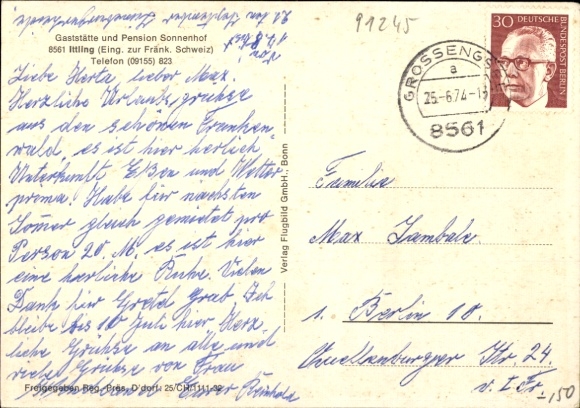 Gaststätte und Pension Sonnenhof
8561 Ittling (Eing. zur Fränk. Schweiz)
Telefon (09155) 823
Liebe Herta, lieber Max.
Herzliche Urlaubsgrüsse
aus den schönen Franken-
wald, es ist hier herlich
Unterkunft Eßen und Wetter
prima. Habe für nächsten
Sommer gleich gemietet pro
Person 20. M. es ist hier
eine herliche Ruhe. Vielen
Dank für Gretel Grab. Ich
bleibe bis 10 Juli hier. Herz-
liche Grüsse an alle und
viele Grüsse von Frau
Freigegeben Reg. Präs. D'dorf: 25/CH/1111-32
Verlag Flugbild GmbH., Bonn
91245
30 DEUTSCHE BUNDESPOST BERLIN
GROSSENGSEE
a
25.-6.74-15
8561
Familie
Max Jambale.
1. Berlin 10.
Quellenburger Str 24.
v. I Tr
-,50